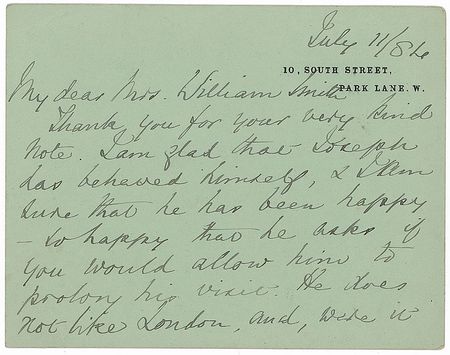 July 11/86
10, SOUTH STREET,
PARK LANE. W.
My dear Mrs. William Smith
Thank you for your very kind
note. I am glad that Joseph
has behaved himself, & I am
sure that he has been happy
- so happy that he asks if
you would allow him to
prolong his visit. He does
not like London, and, were it